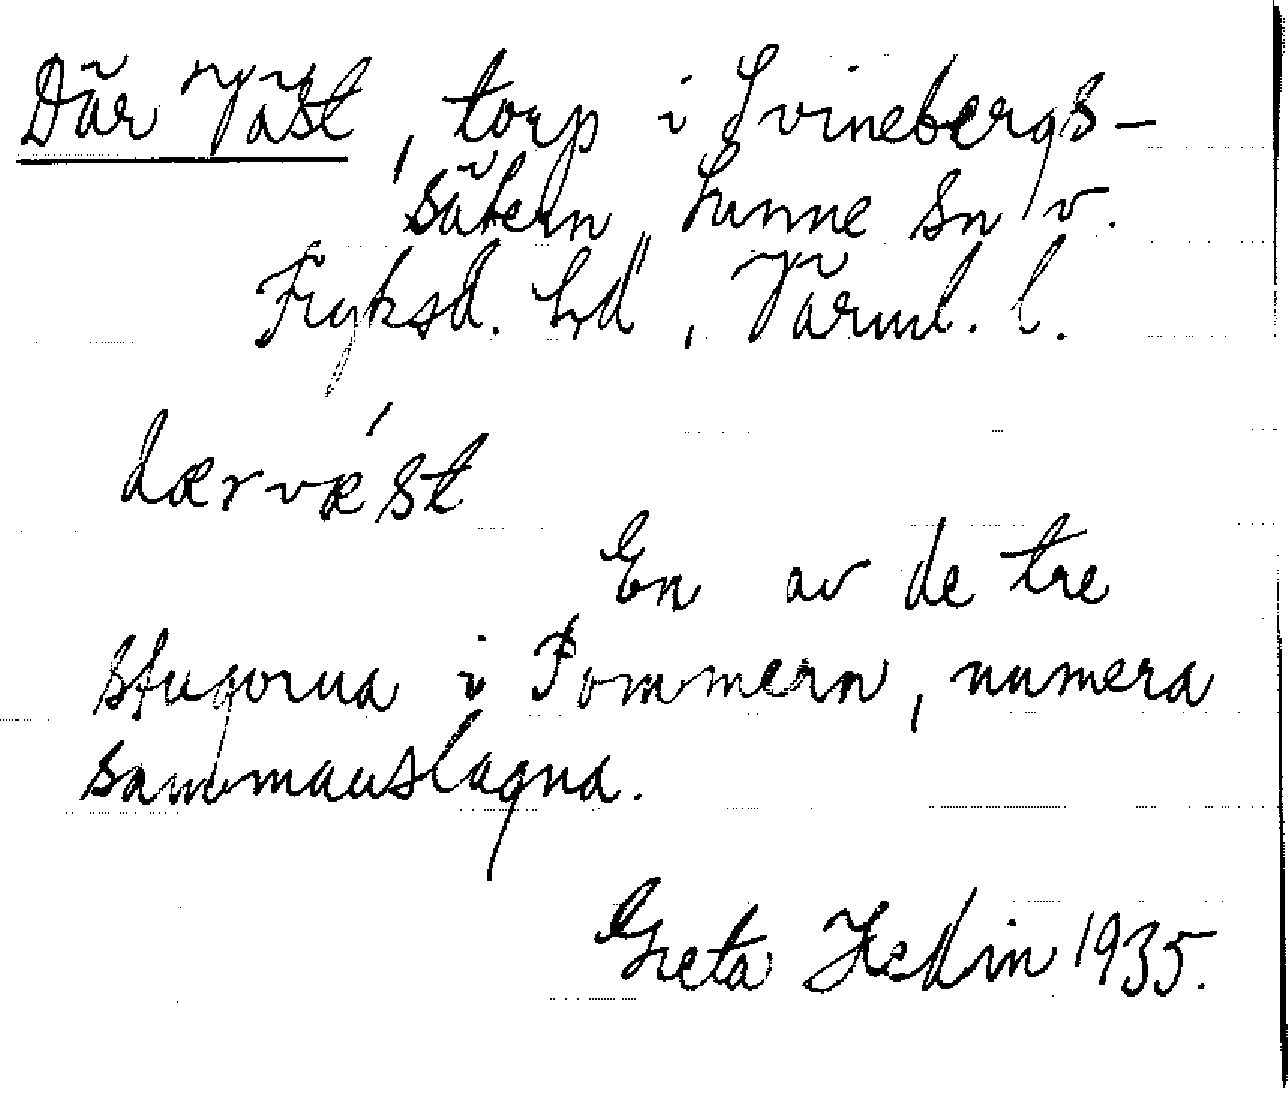 Där Väst, torp i Svinebergs-
sätern, Sunne sn v.
Fryksd. hd, Värml. l.
dærvæ´st
En av de tre
stugorna i Pommern, numera
sammanslagna.
Greta Hedin 1935.